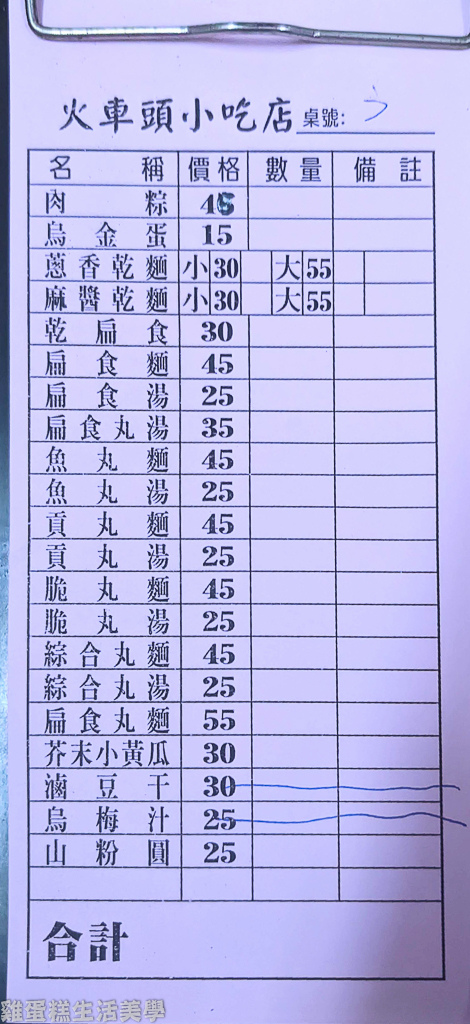 火車頭小吃店 桌號:
名稱 價格 數量 備註
肉粽 45
烏金蛋 15
蔥香乾麵 小 30 大 55
麻醬乾麵 小 30 大 55
乾扁食 30
扁食麵 45
扁食湯 25
扁食丸湯 35
魚丸麵 45
魚丸湯 25
貢丸麵 45
貢丸湯 25
脆丸麵 45
脆丸湯 25
綜合丸麵 45
綜合丸湯 25
扁食丸麵 55
芥末小黃瓜 30
滷豆干 30
烏梅汁 25
山粉圓 25
合計
雞蛋糕生活美學